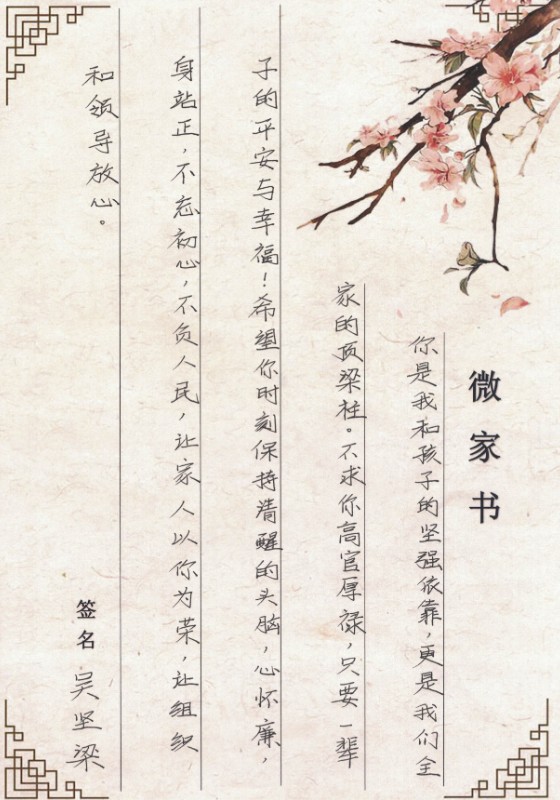 微家书
你是我和孩子的坚强依靠，更是我们全
家的顶梁柱。不求你高官厚禄，只要一辈
子的平安与幸福！希望你时刻保持清醒的头脑，心怀廉，
身站正，不忘初心，不负人民，让家人以你为荣，让组织
和领导放心。
签名 吴坚梁